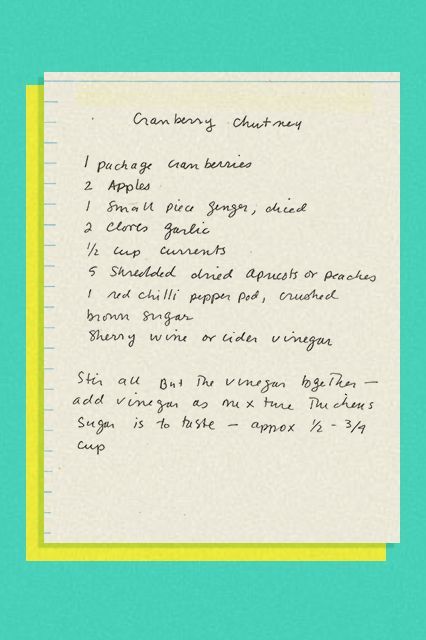 Cranberry Chutney
1 package cranberries
2 Apples
1 Small piece ginger, dried
2 cloves garlic
1/2 cup currents
5 Shredded dried apricots or peaches
1 red chilli pepper pod, crushed
brown sugar
Sherry wine or cider vinegar
Stir all But The vinegar together —
add vinegar as mixture Thickens
Sugar is to taste — approx 1/2 - 3/4
cup